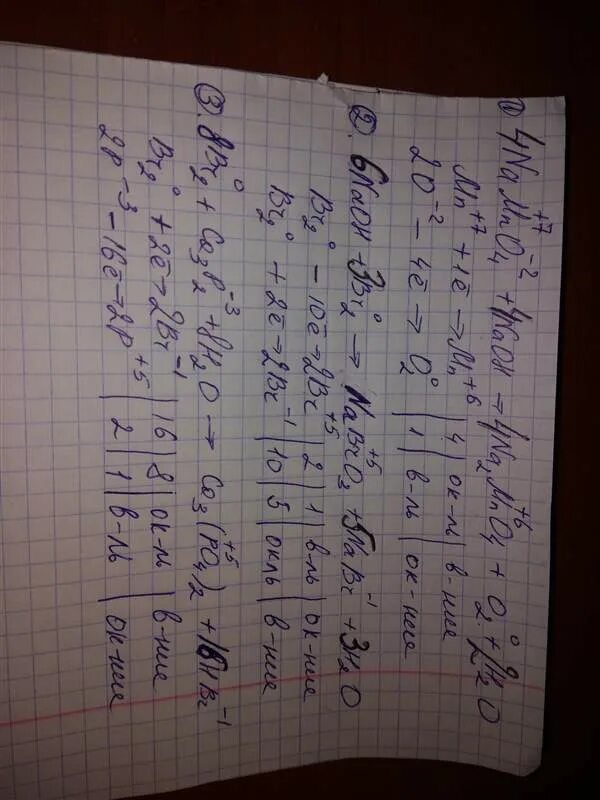 ① 4NaMn⁺⁷O₄⁻² + 4NaOH → 4Na₂Mn⁺⁶O₄ + O₂⁰ + 2H₂O
Mn⁺⁷ + 1ē → Mn⁺⁶ | 4 | ок-ль | в-ние
2O⁻² − 4ē → O₂⁰ | 1 | в-ль | ок-ние
②. 6NaOH + 3Br₂⁰ → NaBr⁺⁵O₃ + 5NaBr⁻¹ + 3H₂O
Br₂⁰ − 10ē → 2Br⁺⁵ | 2 | 1 | в-ль | ок-ние
Br₂⁰ + 2ē → 2Br⁻¹ | 10 | 5 | окль | в-ние
③. 8Br₂⁰ + Ca₃P₂⁻³ + 8H₂O → Ca₃(P⁺⁵O₄)₂ + 16HBr⁻¹
Br₂⁰ + 2ē → 2Br⁻¹ | 16 | 8 | ок-ль | в-ние
2P⁻³ − 16ē → 2P⁺⁵ | 2 | 1 | в-ль | ок-ние